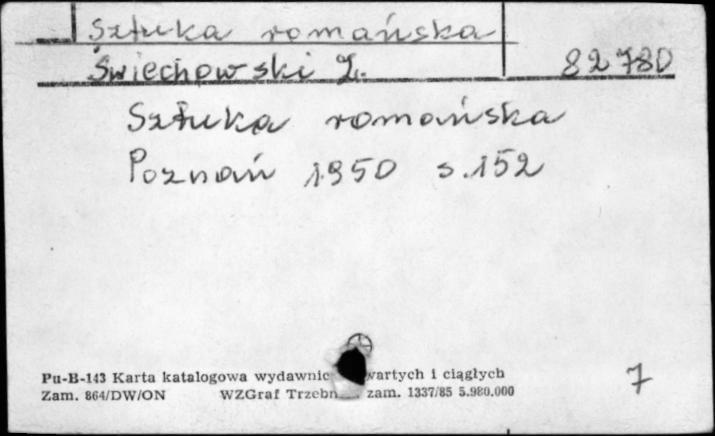 Sztuka romańska
Świechowski Z. 82780
Sztuka romańska
Poznań 1950 s. 152
Pu-B-143 Karta katalogowa wydawnic wartych i ciągłych
Zam. 864/DW/ON WZGraf Trzebn zam. 1337/85 5.980.000
7